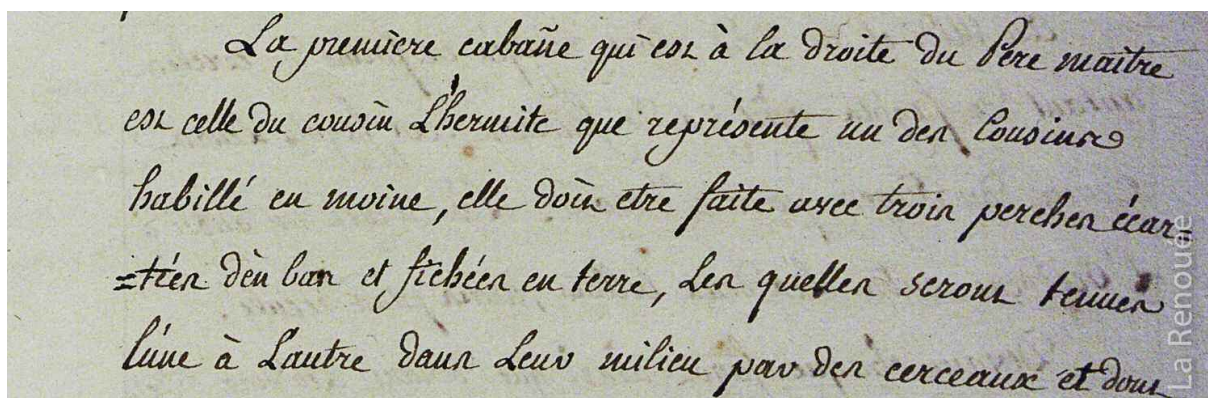 La première cabañe qui est à la droite du Pere maitre
est celle du cousin L'hermite que représente un des Cousins
habillé en moine, elle doit etre faite avec trois perches écar=
=tées d'en bas et fichées en terre, Les quelles seront tenues
l'une à Lautre dans Leur milieu par des cerceaux et dont
La Renouée